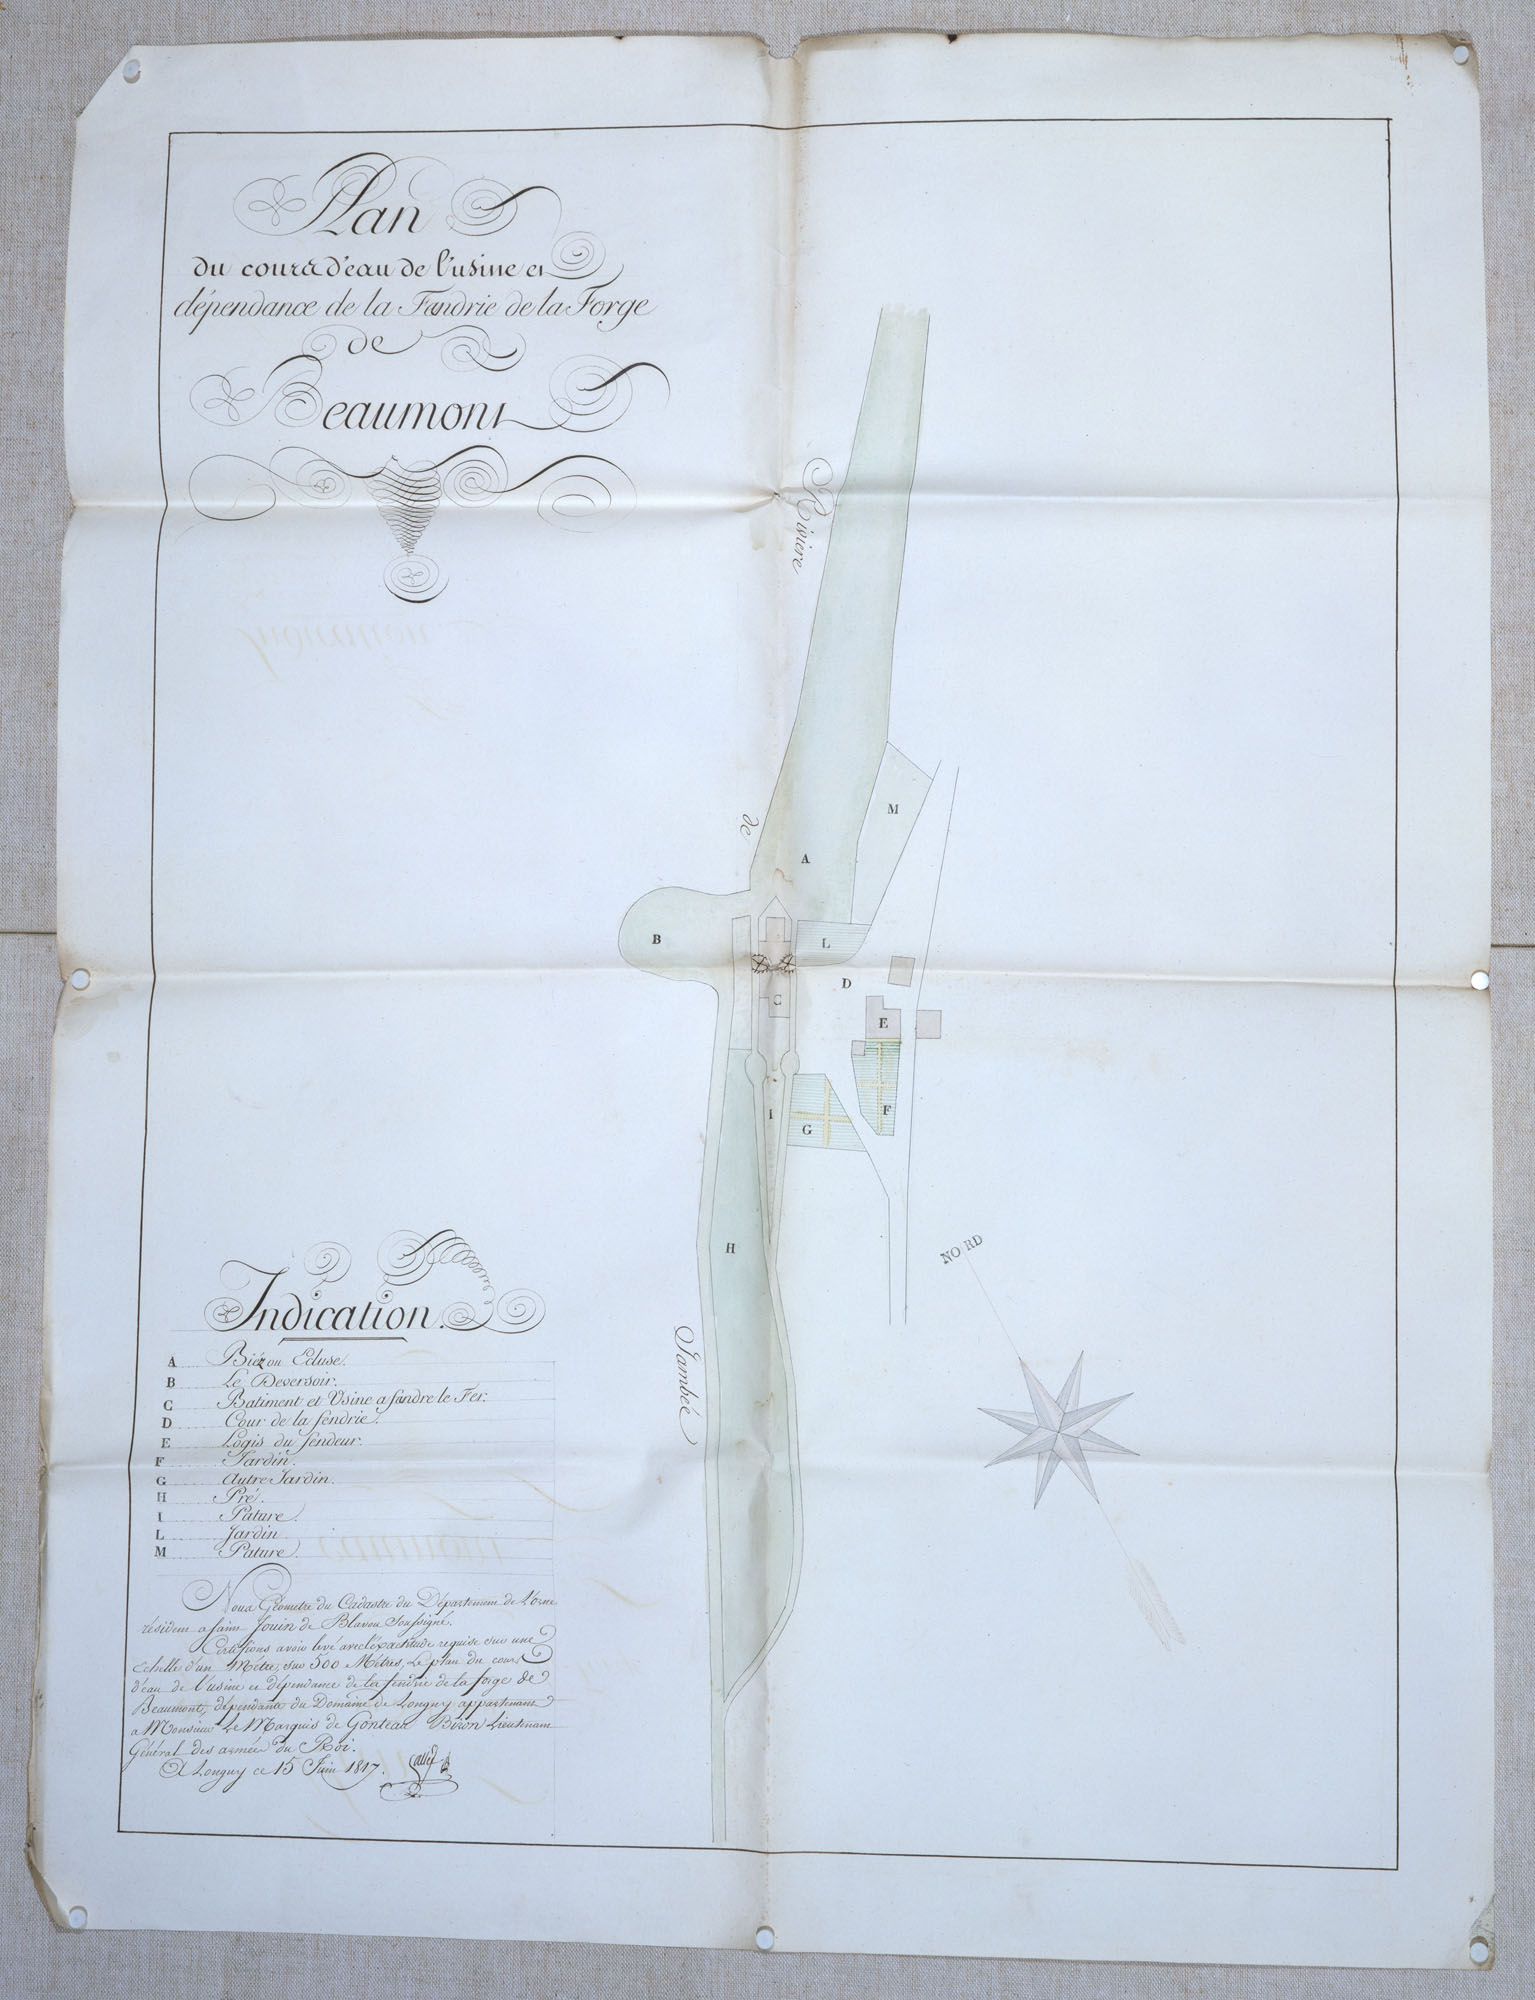 Plan
du cours d'eau de l'usine et
dépendance de la Fandrie de la Forge
de
Beaumont
Rivière
de
Jambeé
M
A
B
L
D
C
E
I
F
G
H
NORD
Indication.
A Biéz ou Ecluse.
B Le Deversoir.
C Batiment et Usine a fandre le Fer.
D Cour de la fendrie.
E Logis du fendeur.
F Jardin.
G Autre Jardin.
H Pré.
I Pature.
L Jardin
M Pature.
Nous Géometre du Cadastre du Département de l'orne
résident a saint Jouin de Blavou Soussigné.
Certifions avoir levé avec l'éxactitude requise sur une
Echelle d'un Métre, sur 500 Métres, Le plan du cours
d'eau de l'usine et dépendance de la fendrie de la forge de
Beaumont, dépendante du Domaine de Longny appartenant
a Monsieur Le Marquis de Gonteau Biron Lieutenant
Général des armées du Roi.
A Longny ce 15 Juin 1817.